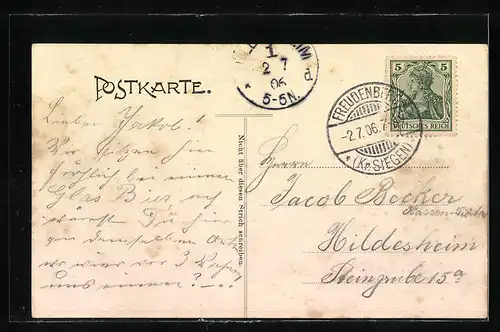 POSTKARTE.
HILDESHEIM
1
2 7
06
* d
5-6N.
5 5
DEUTSCHES REICH
FREUDENBERG
-2.7.06.
* (Kr. SIEGEN)
Lieber Jakob!
Wir sitzen hier
fröhlich bei einem
Glas Bier,
Du hier
an demselben
wo wir vor 3
uns einen?
Nicht über diesen Strich schreiben.
Herrn
Jacob Becker
Hildesheim
Steingrube 15a